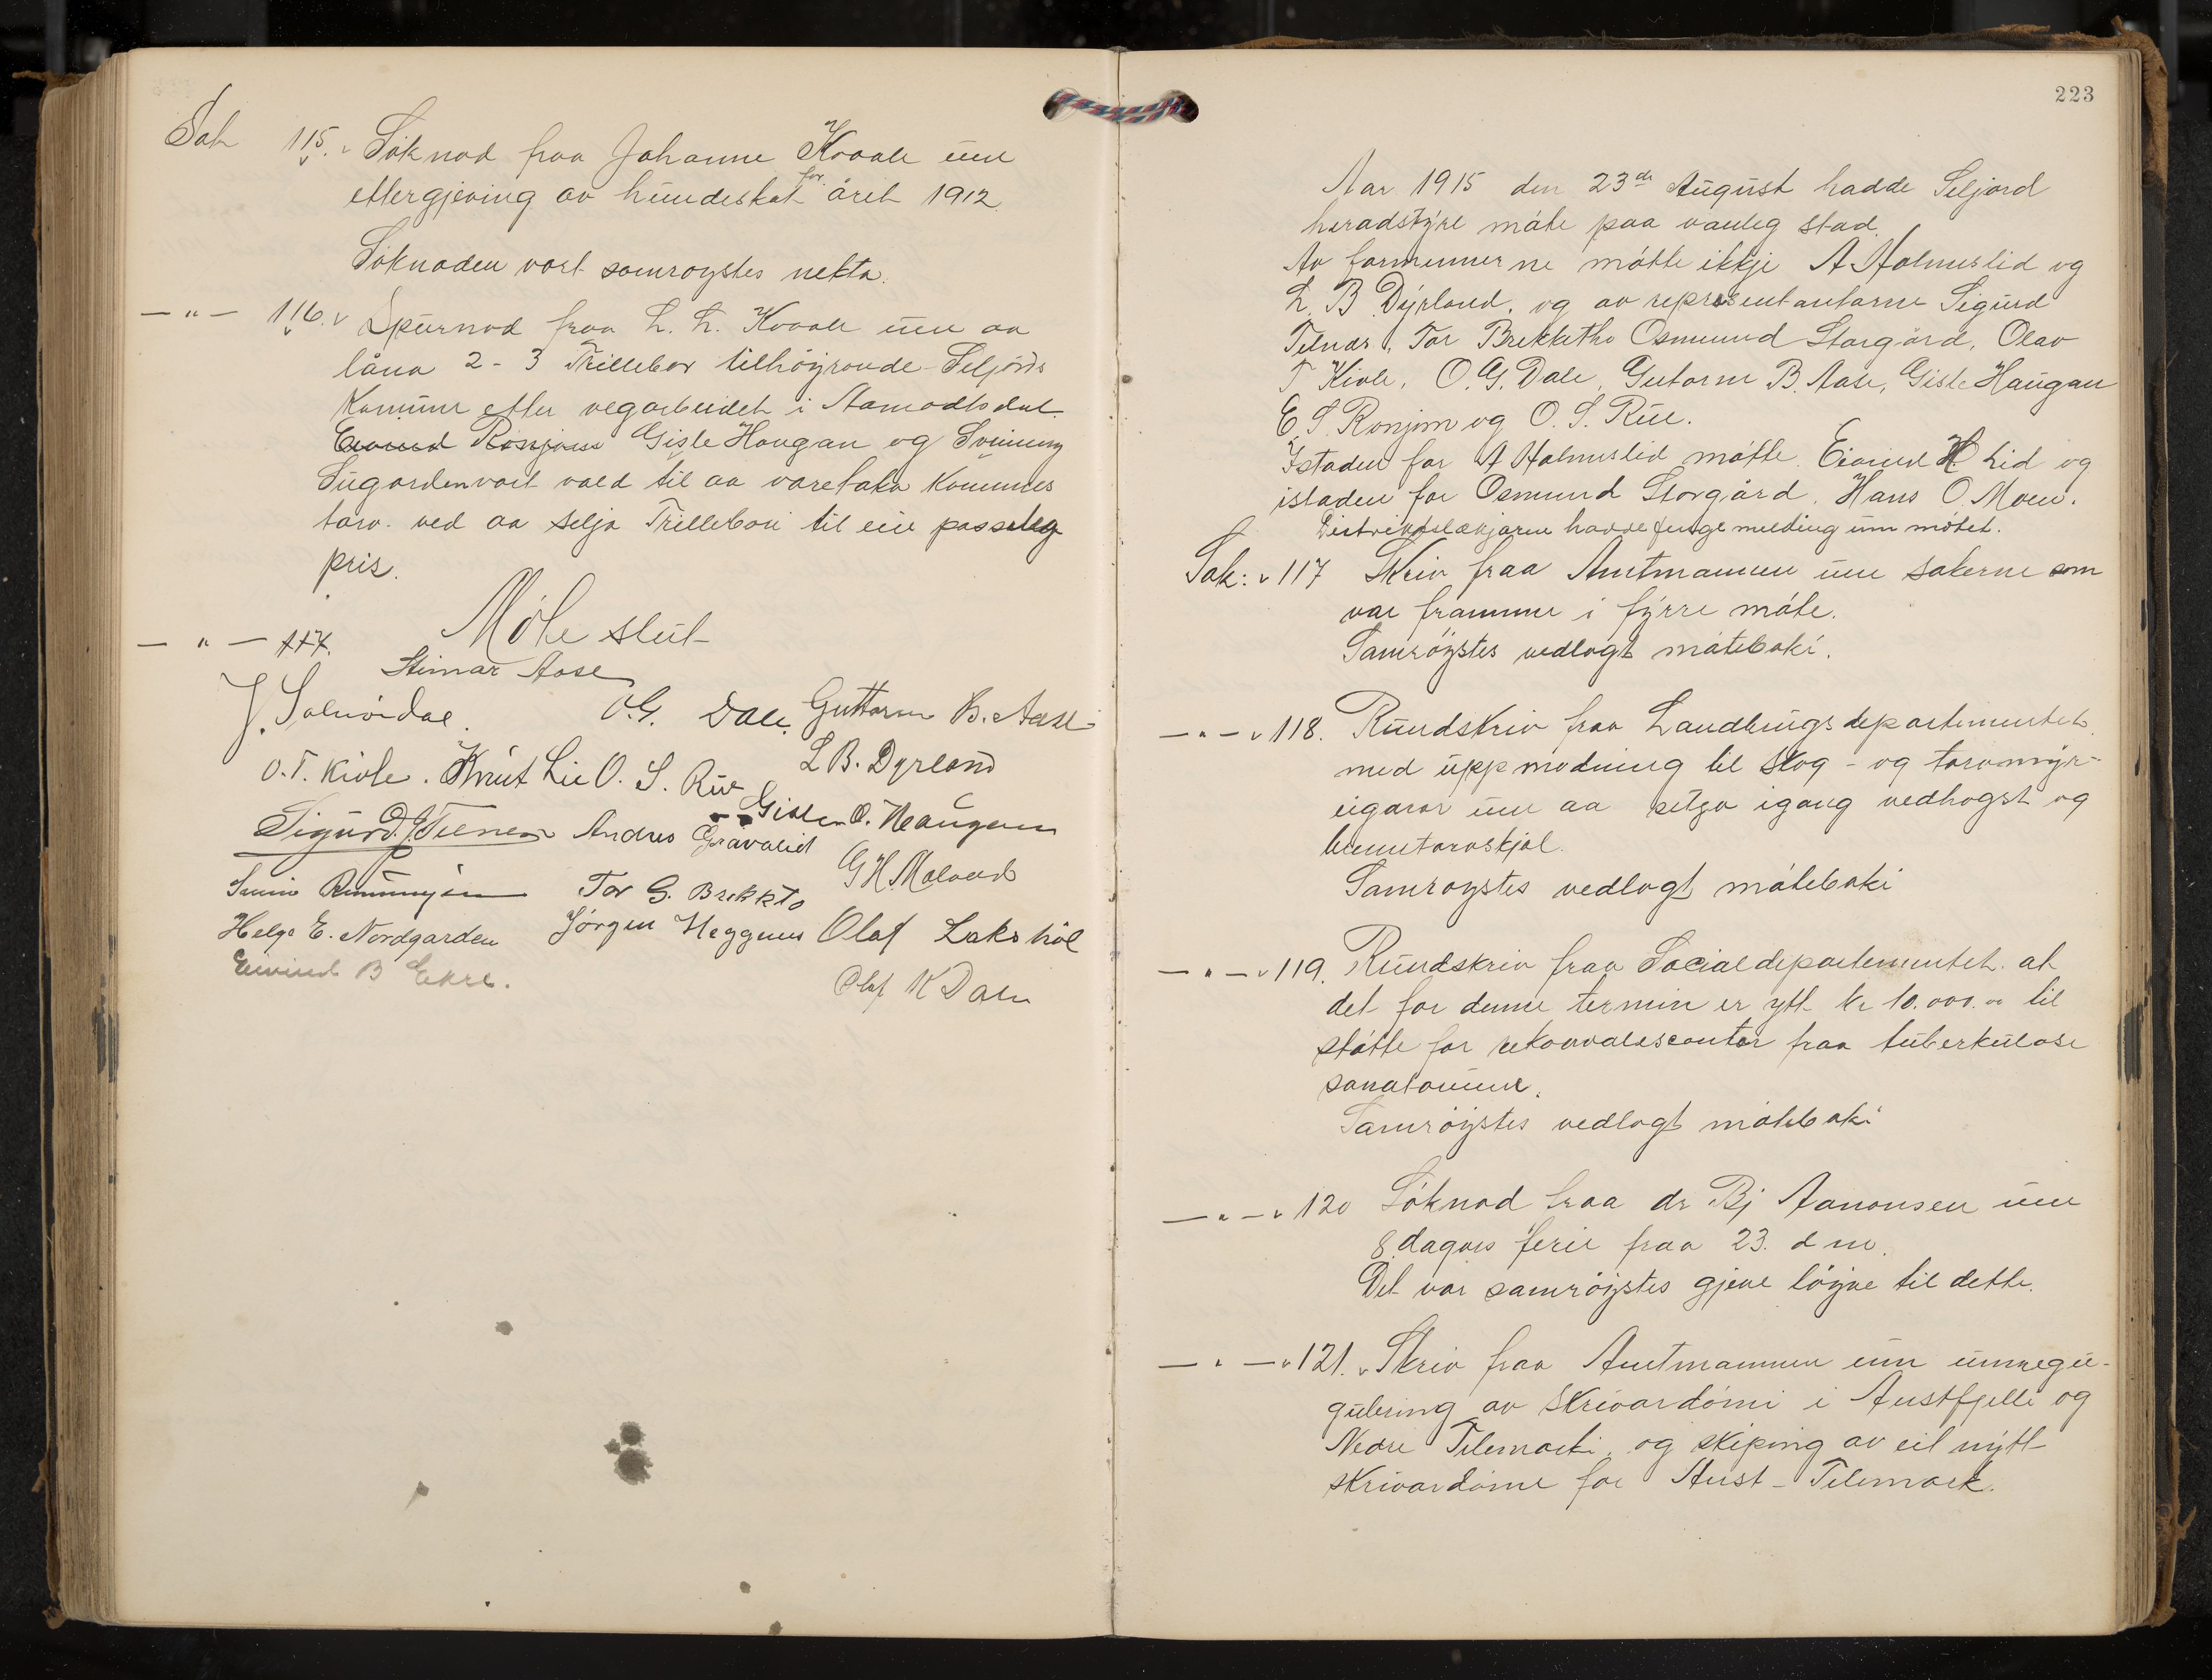 Sak 115. Söknad fraa Johanne Kvaale um
ettergjeving av hundeskat for året 1912.
Söknaden vart samrøystes nekta.
— " — 116. Spurnad fraa H. H. Kvaale um aa
låna 2 - 3 Trillebor tilhöyrande Seljords
Komune etter vegarbeidet i Aamodtsdal.
Gisle Haugan og Sveinung
Sugarden vart vald til aa vareta Komunes
tarv. ved aa selja Trillebori til ein passeleg
pris.
— " — 117. Möte slut
Steinar Aase
J. Salvöidal. O.G. Dale. Guttorm B. Aase
O. T. Kivle. Knut Lie O. S. Rue L B. Dyrland
Sigurd J. Telnes Andres Gravalid Gisle O. Haugan
Tor G. Brekkto G H. Moland
Helge E. Nordgarden Jörgen Heggnes Olaf Lakshöl
Eivind B Ekre. Olaf K Dale
223
Aar 1915 den 23de August hadde Seljord
heradstyre möte paa vanleg stad.
Av formennerne mötte ikkje A Holmslid og
L. B. Dyrland. og av representantarne Sigurd
Telnes, Tor Brekketho Osmund Storgård, Olav
T Kivle, O. G. Dale, Gutorm B. Aase, Gisle Haugan
E. S. Ronjom og O. S. Rue.
Istaden for A Holmslid mötte Eivind H Lid og
istaden for Osmund Storgård. Hans O. Moen.
Distriktslækjaren havde fenge melding um mötet.
Sak: 117 Skriv fraa Amtmannen um sakerne som
var framme i fyrre möte.
Samröystes vedlagt möteboki.
— " — 118. Rundskriv fraa Landbrugsdepartementet
med uppmodning til skog - og torvmyr-
eigarar um aa setja igang vedhogst og
brenntorvskjol.
Samroystes vedlagt möteboki
— " — 119. Rundskriv fraa Socialdepartementet. at
det for denne termin er ytt kr 10.000.00 til
stötte for rekonvalescentar fraa tuberkulose
sanatorium.
Samröystes vedlagt möteboki
— " — 120 Söknad fraa dr Bj Aanonsen um
8 dagars ferie fraa 23. d m.
Det var samröystes gjeve löyve til dette.
— " — 121. Skriv fraa Amtmannen um umregu-
gulering av skrivardömi i Austfjelle og
Nedre Telemarki, og skiping av eit nytt
skrivardöme for Aust - Telemark.